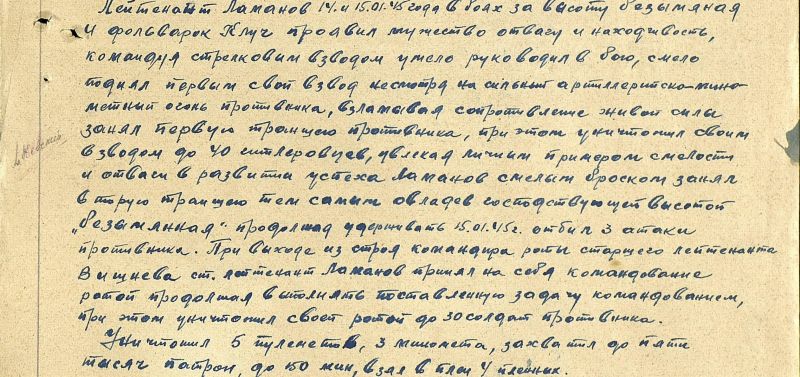 Лейтенант Ламанов 14. и 15.01.45 года в боях за высоту безымяная
и фольварок Клуч проявил мужество отвагу и находчивость,
командуя стрелковым взводом умело руководил в бою, смело
поднял первым свой взвод несмотря на сильный артиллерийско-мино-
метный огонь противника, взламывая сопротивление живой силы
занял первую траншею противника, при этом уничтожил своим
взводом до 40 гитлеровцев, увлекая личным примером смелости
и отваги в развитии успеха Ламанов смелым броском занял
вторую траншею тем самым овладев господствующей высотой
„безымянная" продолжая удерживать 15.01.45г. отбил 3 атаки
противника. При выходе из строя командира роты старшего лейтенанта
Вишнева ст. лейтенант Ламанов принял на себя командование
ротой продолжая выполнять поставленную задачу командованием,
при этом уничтожил своей ротой до 30 солдат противника.
Уничтожил 5 пулеметов, 3 миномета, захватил до пяти
тысяч патрон, до 150 мин, взял в плен 4 пленных.